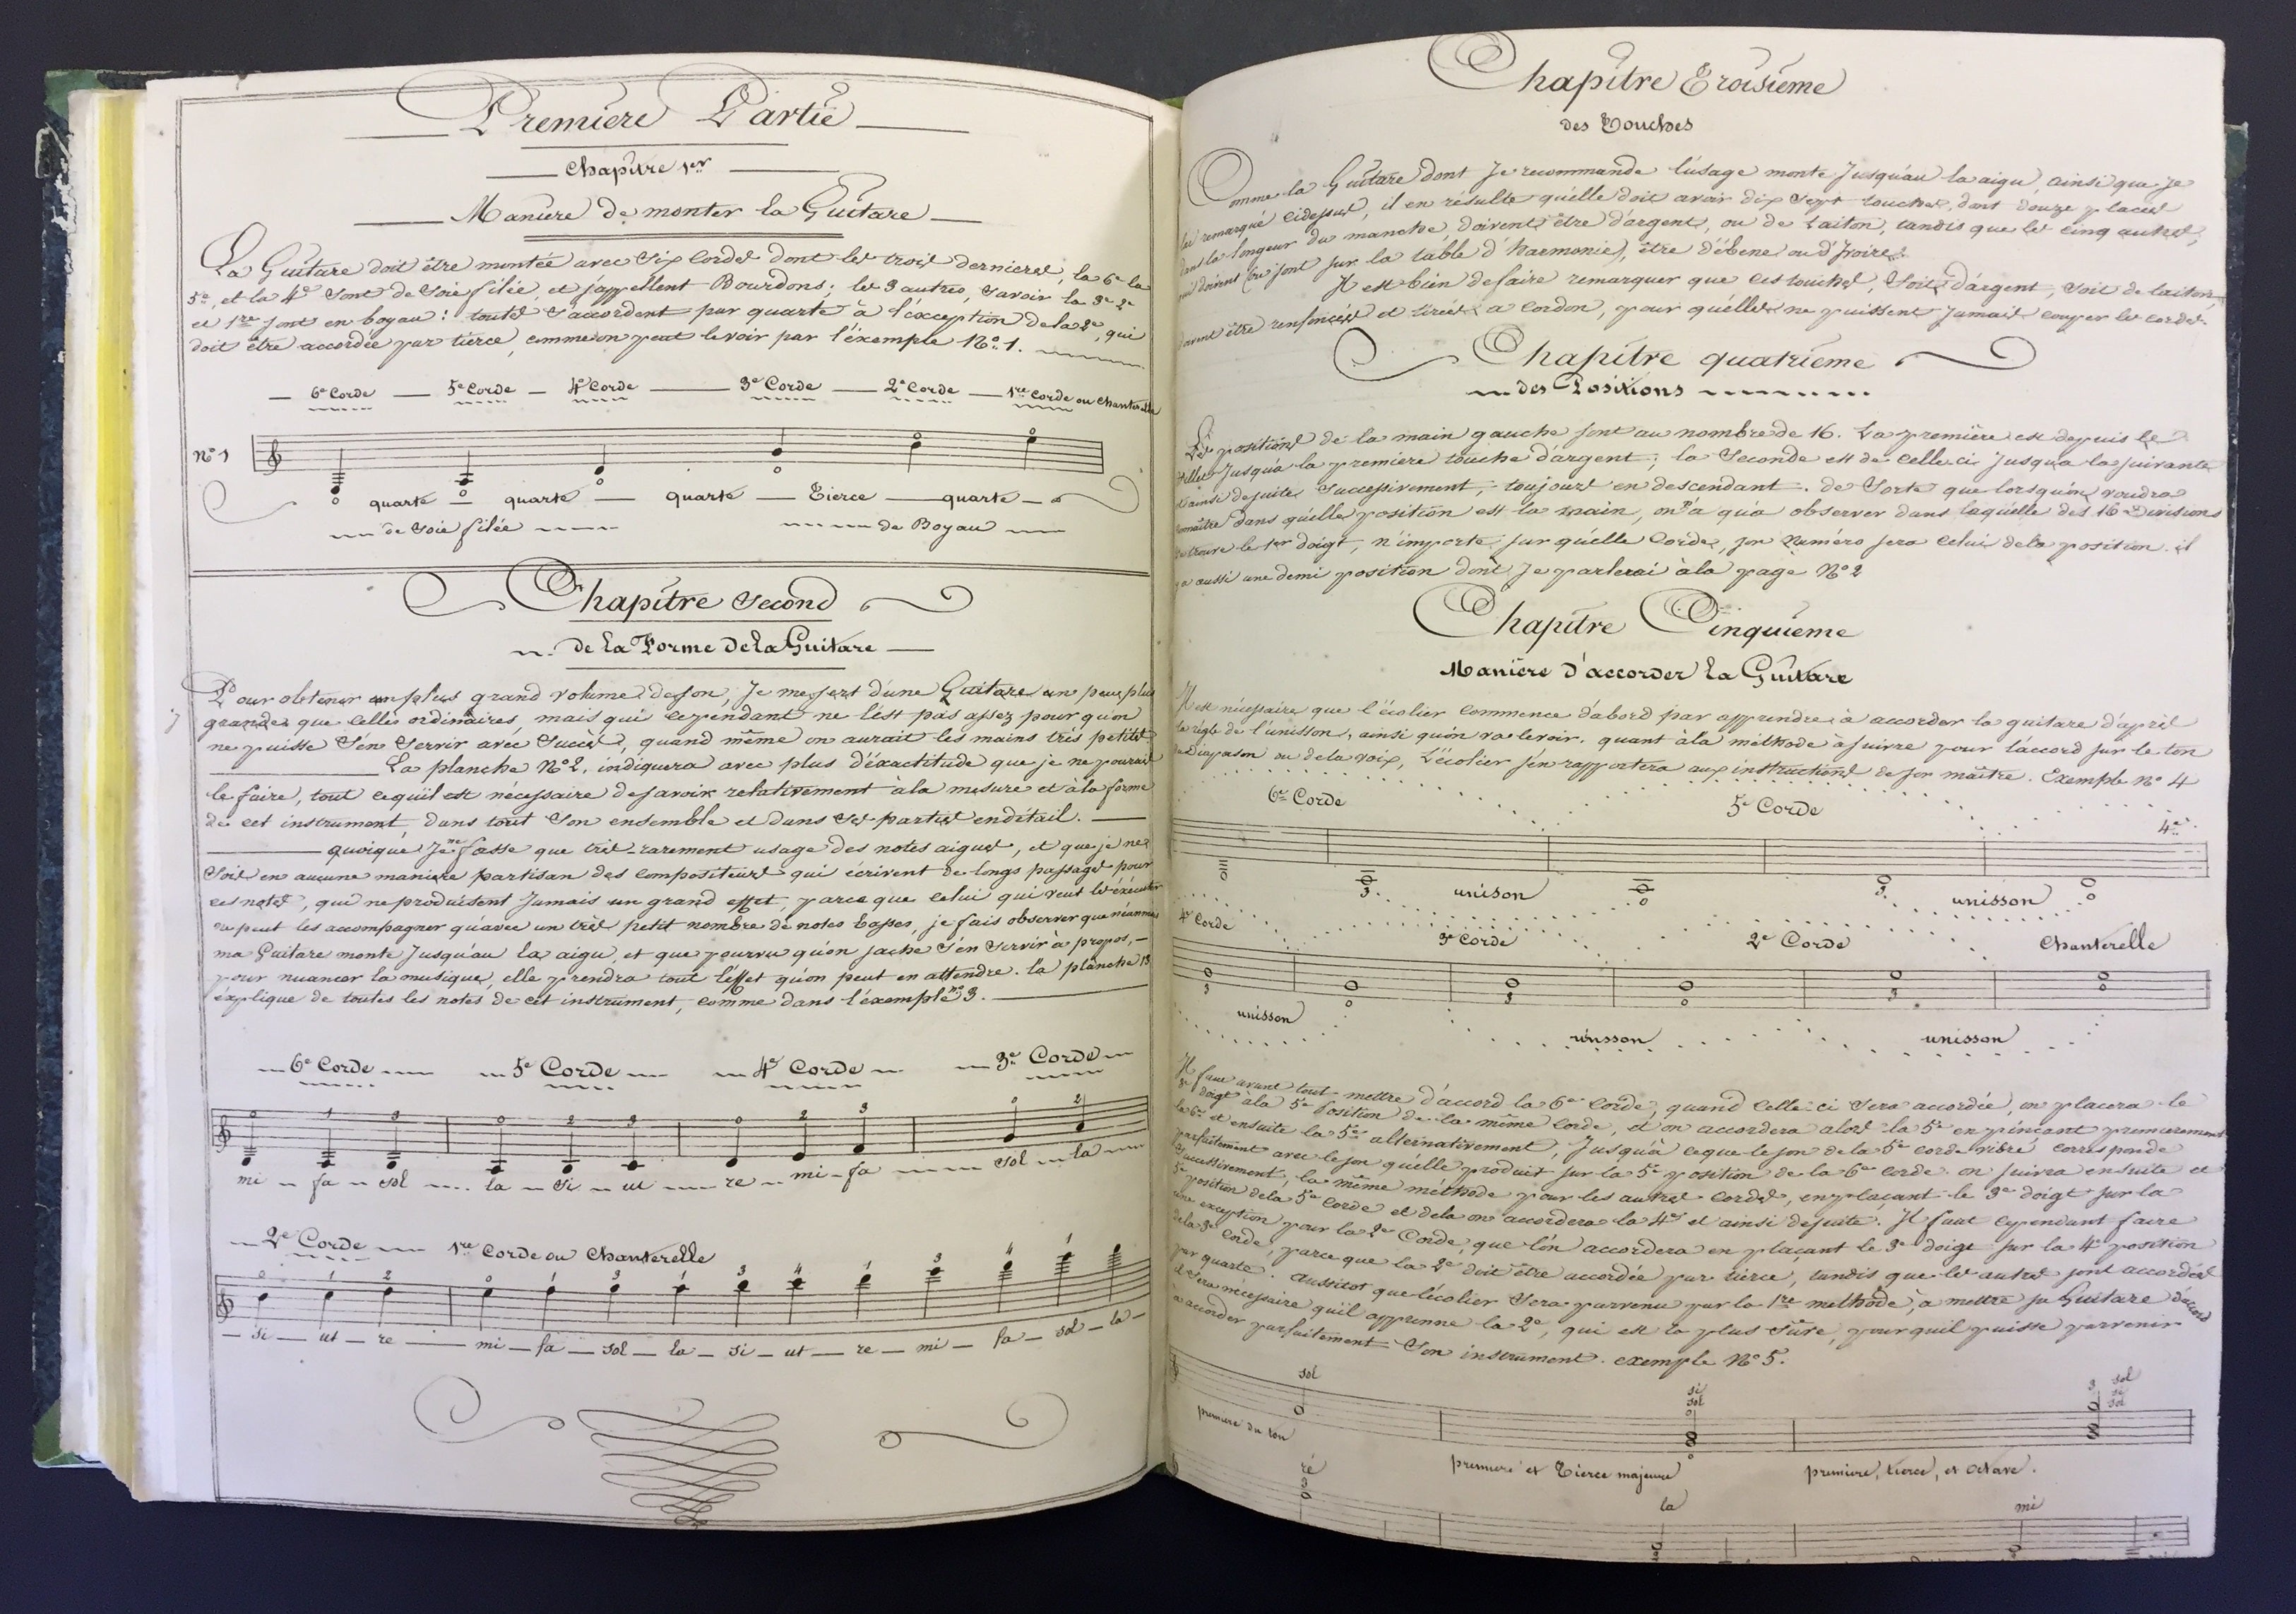 Premiere Partie
Chapitre 1er
Maniere de monter la Guitare
La Guitare doit être montée avec Six Cordes dont les trois dernieres, la 6e la
5e, et la 4e sont de Soie filée, et s'appellent Bourdons; les 3 autres, Savoir la 3e 2e
et 1re sont en boyau: toutes s'accordent par quarte à l'éxception de la 2e, qui
doit être accordée par tierce, comme on peut le voir par l'éxemple No 1.
6e Corde 5e Corde 4e Corde 3e Corde 2e Corde 1re Corde ou Chanterelle
No 1
quarte quarte quarte Tierce quarte
de Soie filée de Boyau
Chapitre Second
de la Forme de la Guitare
Pour obtenir un plus grand volume de son, Je me sert d'une Guitare un peu plus
grande que celles ordinaires, mais qui cependant ne l'est pas assez pour qu'on
ne puisse s'en servir avec Succès, quand même on aurait les mains très petites
La planche No 2. indiquera avec plus d'éxactitude que je ne pourais
le faire, tout ce qu'il est nécessaire de savoir relativement à la mesure et à la forme
de cet instrument, dans tout Son ensemble et dans Ses parties en détail.
quoique Je ne fasse que très-rarement usage des notes aigues, et que je ne
Sois en aucune maniere partisan des compositeurs qui écrivent de longs passages pour
ces notes, qui ne produisent Jamais un grand effet, parce que celui qui veut les éxécuter
ne peut les accompagner qu'avec un très petit nombre de notes basses, je fais observer que néanmoins
ma Guitare monte Jusqu'au la aigu, et que pourvu qu'on sache s'en Servir à propos,
pour nuancer la musique, elle prendra tout l'effet qu'on peut en attendre. la planche
éxplique de toutes les notes de cet instrument, comme dans l'éxemple no 3.
6e Corde 5e Corde 4e Corde 3e Corde
0 1 3 0 2 3 0 2 3 0 2
mi fa sol la Si ut re mi fa Sol la
2e Corde 1re Corde ou Chanterelle
0 1 2 0 1 3 1 3 4 1 3 4 1
Si ut re mi fa sol la si ut re mi fa sol la
Chapitre Troisieme
des Touches
Comme la Guitare dont Je recommande l'usage monte Jusqu'au la aigu, ainsi que je
l'ai remarqué cidessus, il en résulte qu'elle doit avoir dix Sept touches, dont douze placées
dans la longeur du manche, doivent être d'argent, ou de Laiton, tandis que les cinq autres,
qui doivent être sont sur la table d'harmonie), être d'ébene ou d'Ivoire.
Il est bien de faire remarquer que ces touches, Soit d'argent, soit de laiton,
doivent être renfoncées et tirées a cordon, pour qu'elles ne puissent Jamais couper les cordes.
Chapitre quatrieme
des Positions
Les positions de la main gauche sont au nombre de 16. La première est depuis le
Sillet Jusqu'a la premiere touche d'argent; la Seconde est de celle ci Jusqu'a la suivante
et ainsi de suite Successivement, toujours en descendant. de Sorte que lorsqu'on voudra
connaître dans qu'elle position est la main, on n'a qu'a observer dans laquelle des 16 Divisions
se trouve le 1er doigt, n'importe sur qu'elle Corde, son Numéro sera Celui de la position. il
y a aussi une demi position dont Je parlerai à la page No 2
Chapitre Cinquieme
Manière d'accorder la Guitare
Il est nécessaire que l'écolier commence d'abord par apprendre à accorder la guitare d'après
la régle de l'unisson, ainsi qu'on va le voir. quant à la méthode à suivre pour l'accord sur le ton
du Diapason ou de la voix, L'écolier s'en rapportera aux instructions de son maître. Exemple No 4
6e Corde 5e Corde 4e
0 3. unison 0 3. unisson 0
4e Corde 3e Corde 2e Corde Chanterelle
3 0 3 0 3 0
unisson unisson unisson
Il faut avant tout mettre d'accord la 6e Corde, quand Celle-ci Sera accordée, on placera le
3e doigt à la 5e Position de la même Corde, et on accordera alors la 5e en pincant premierement
la 6e et ensuite la 5e alternativement, Jusqu'à ce que le son de la 5e corde vibré corresponde
parfaitement avec le son qu'elle produit sur la 5e position de la 6e corde. on suivra ensuite et
Successivement, la même méthode pour les autres cordes, en plaçant le 3e doigt sur la
5e position de la 5e Corde et de la on accordera la 4e et ainsi de suite. Il faut cependant faire
une exception pour la 2e Corde, que l'on accordera en plaçant le 3e doigt sur la 4e position
de la 3e Corde, parce que la 2e doit être accordée par tierce, tandis que les autres sont accordées
par quarte. Aussitot que l'écolier Sera parvenu par la 1re méthode, a mettre sa Guitare d'accord
il Sera nécessaire qu'il apprenne la 2e, qui est la plus Sûre, pour qu'il puisse parvenir
a accorder parfaitement Son instrument. exemple No 5.
sol si sol 3 sol si sol
premiere du ton premiere et Tierce majeure premiere, tierce, et octave.
ré la mi